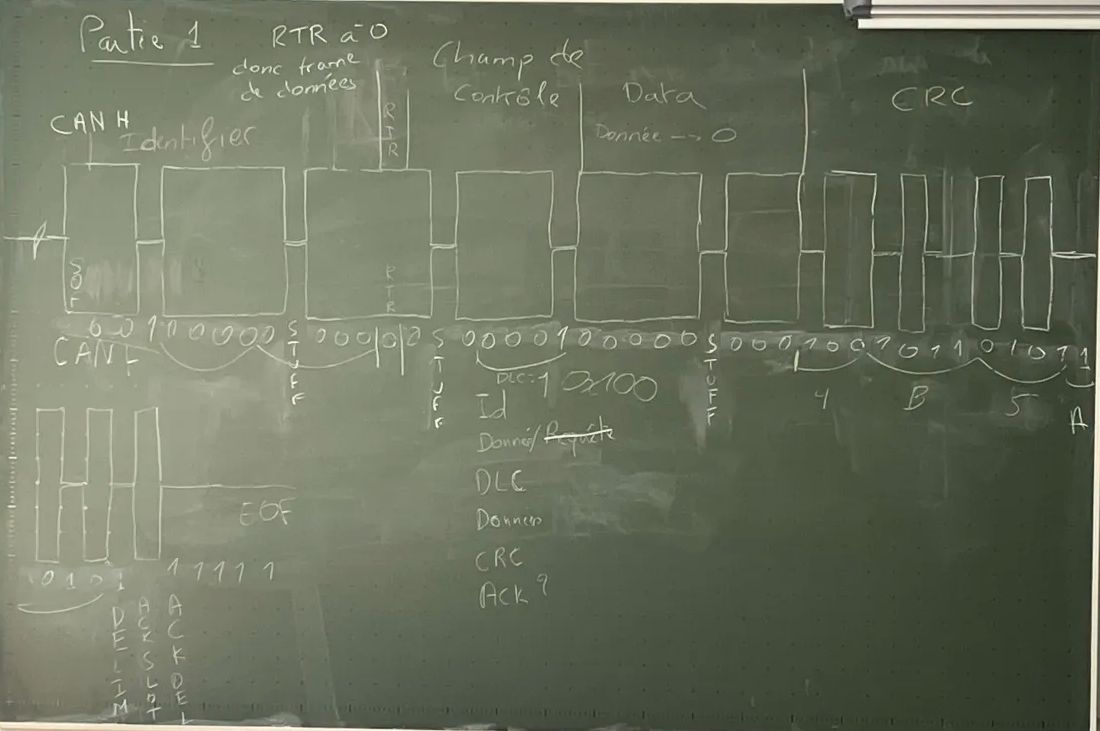 Partie 1
RTR à 0
donc trame
de données
Champ de
Contrôle
Data
CRC
RTR
CAN H
Identifier
Donnée --> 0
SOF
RTR
0 0 1 1 0 0 0 0 0 STUFF 0 0 0 0 0 STUFF 0 0 0 0 1 0 0 0 0 0 STUFF 0 0 0 1 0 0 1 0 1 1 0 1 0 1 1
CAN L
DLC=1 0x100
4 B 5 A
Id
Donnée/Requête
DLC
Données
CRC
Ack ?
EOF
0 1 0 1 1 1 1 1 1
DELIM
ACK SLOT
ACK DEL